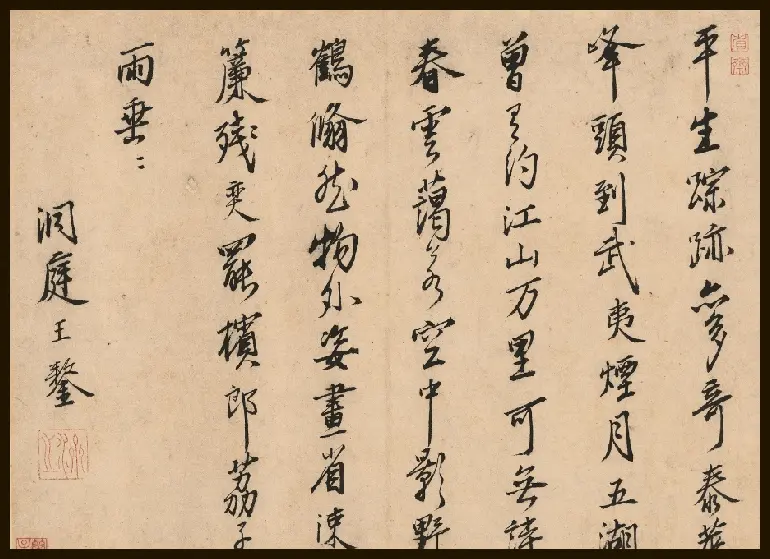 平生踪跡亦多奇泰華
峰頭到武夷煙月五湖
曾有約江山万里可無詩
春雲藹藹空中影野
鶴翛然物外姿畫省涑
簾殘奕罷檳郎荔子
雨垂〻
洞庭王鏊